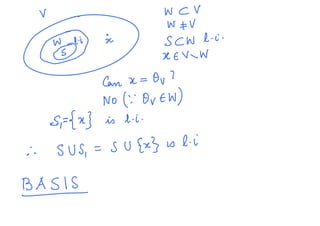 V
W ⊂ V
W ≠ V
W l.i
S
ẋ
S ⊂ W l.i.
x ∈ V \ W
Can x = θ_V ?
NO (∵ θ_V ∈ W)
S₁ = {x} is l.i.
∴ S ∪ S₁ = S ∪ {x} is l.i
BASIS